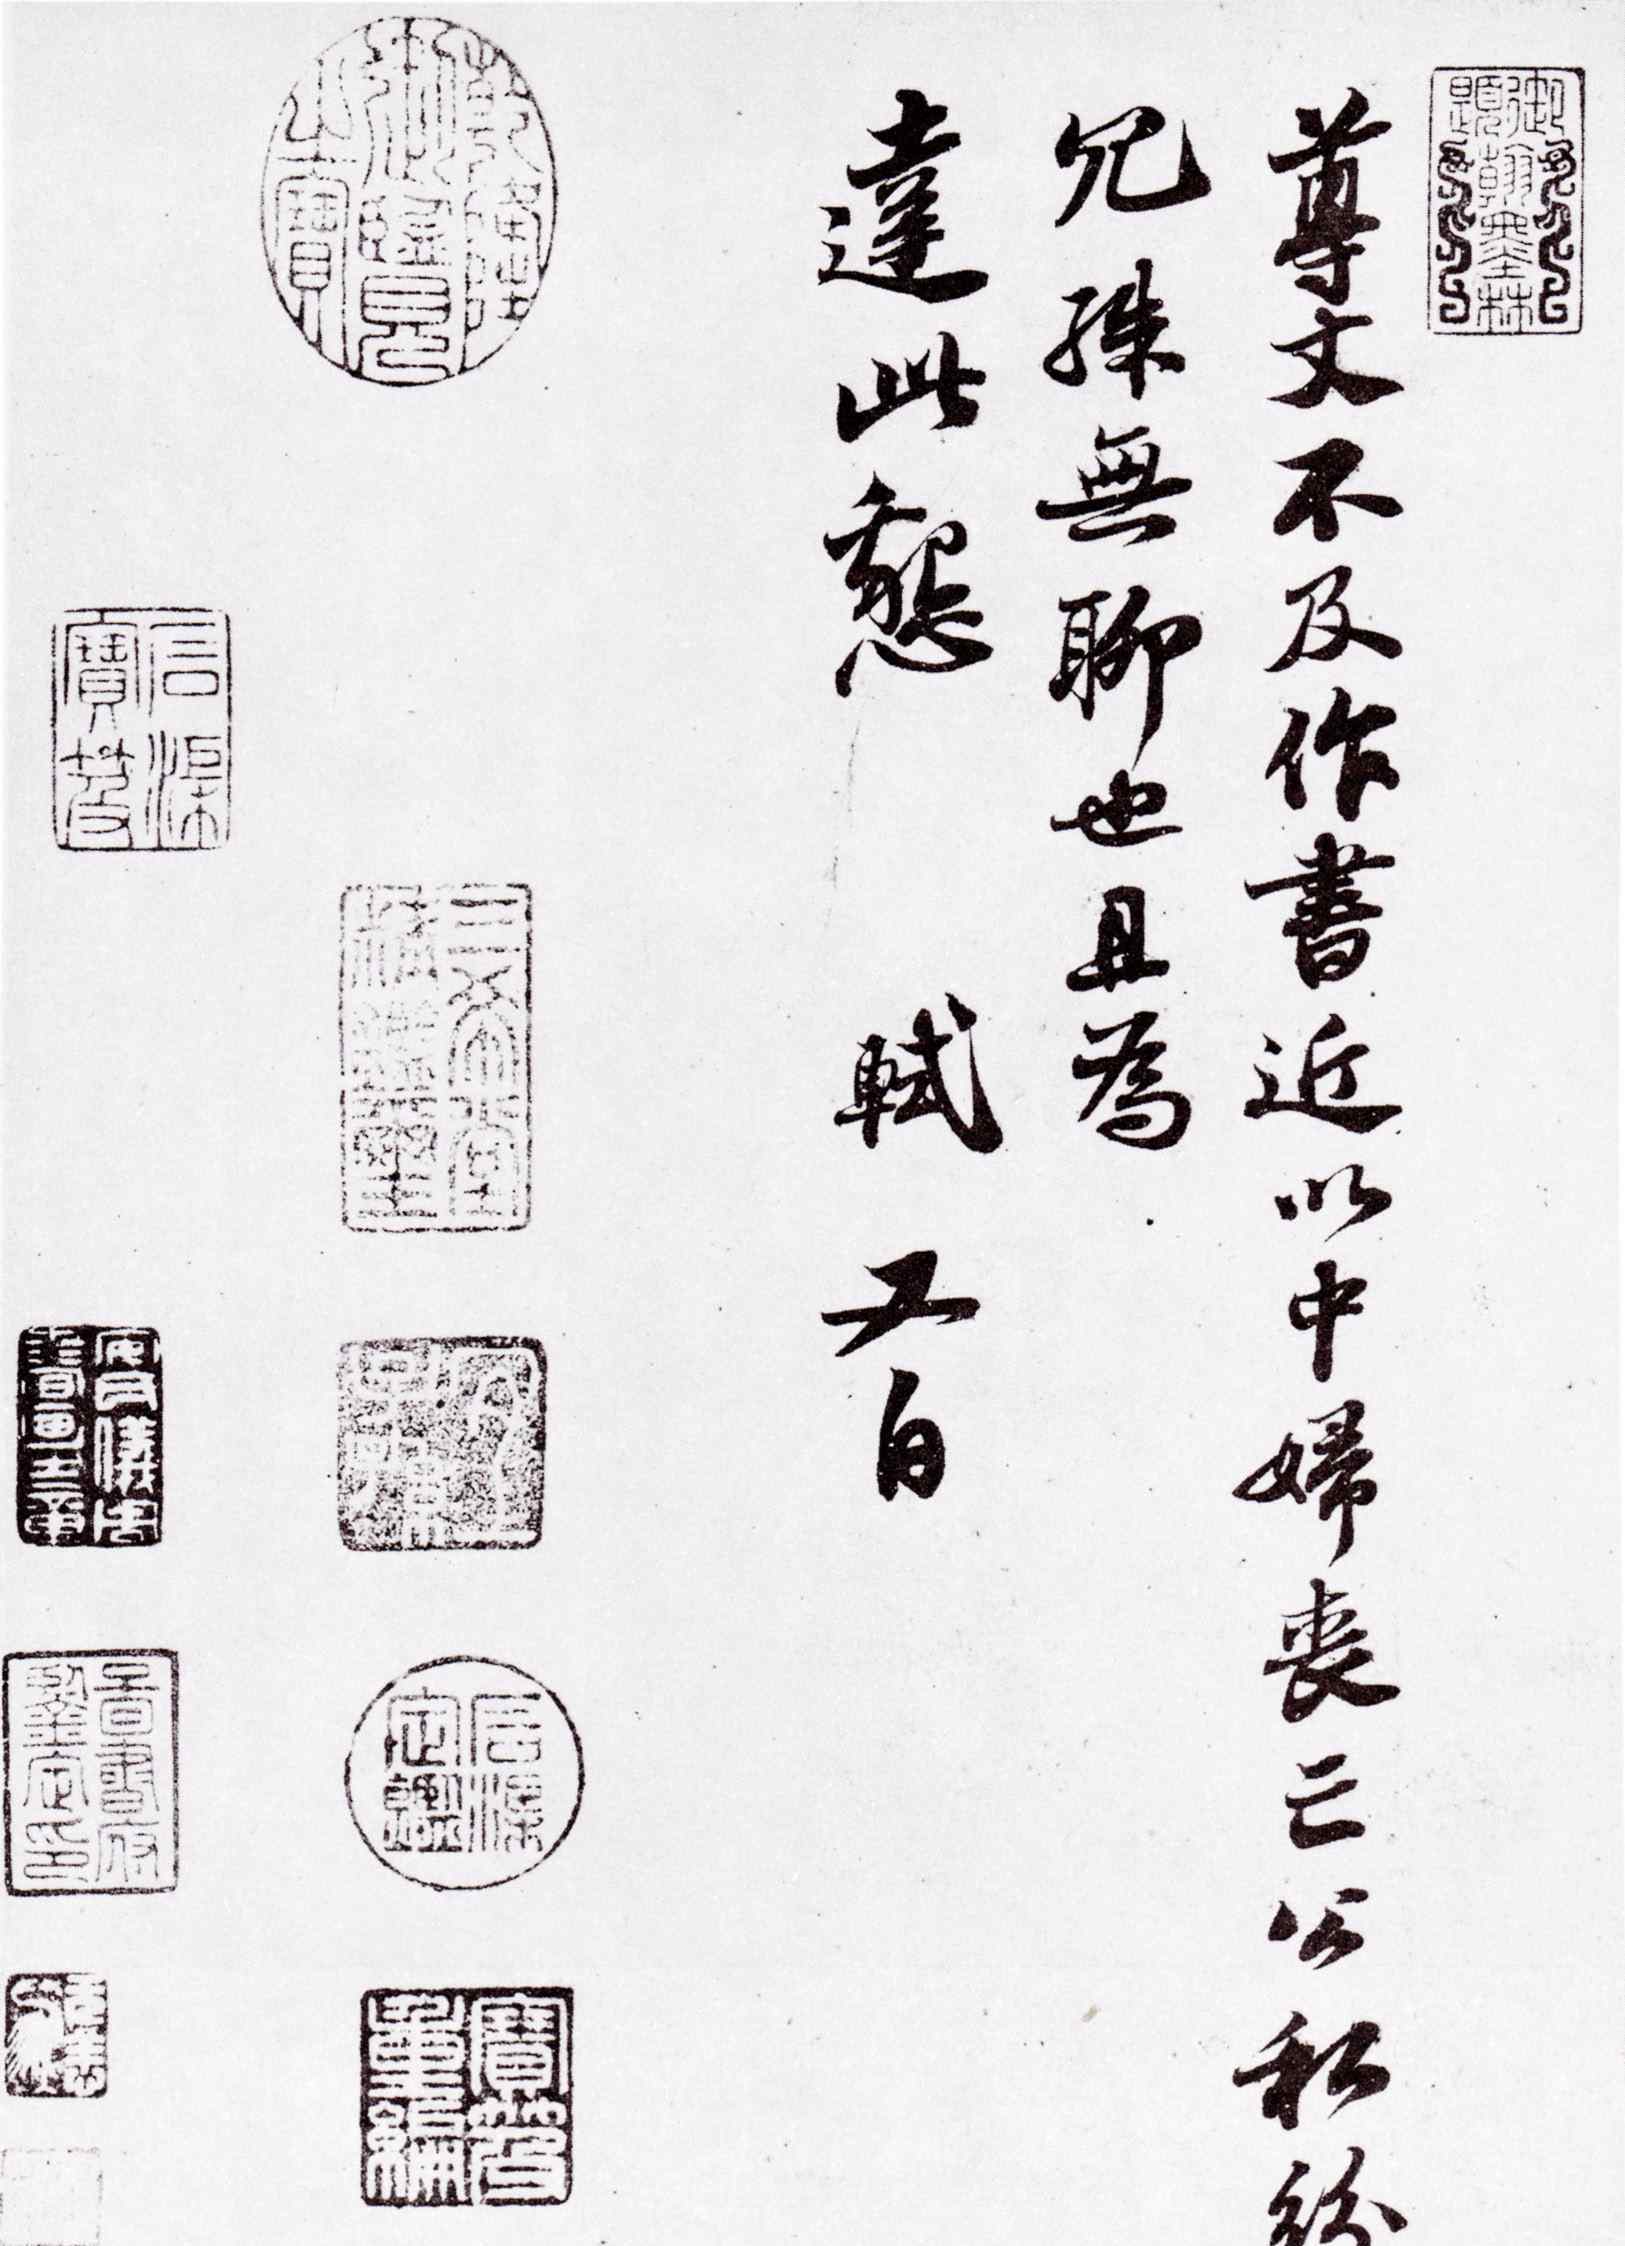 御題翰墨林
尊丈不及作書近以中婦喪亡公私紛
冗殊無聊也且為
達此懇 軾 又白
乾隆御覽之寶
三希堂精鑑璽
宜子孫
石渠定鑑
寶笈重編
石渠寶笈
安氏儀周書畫之章